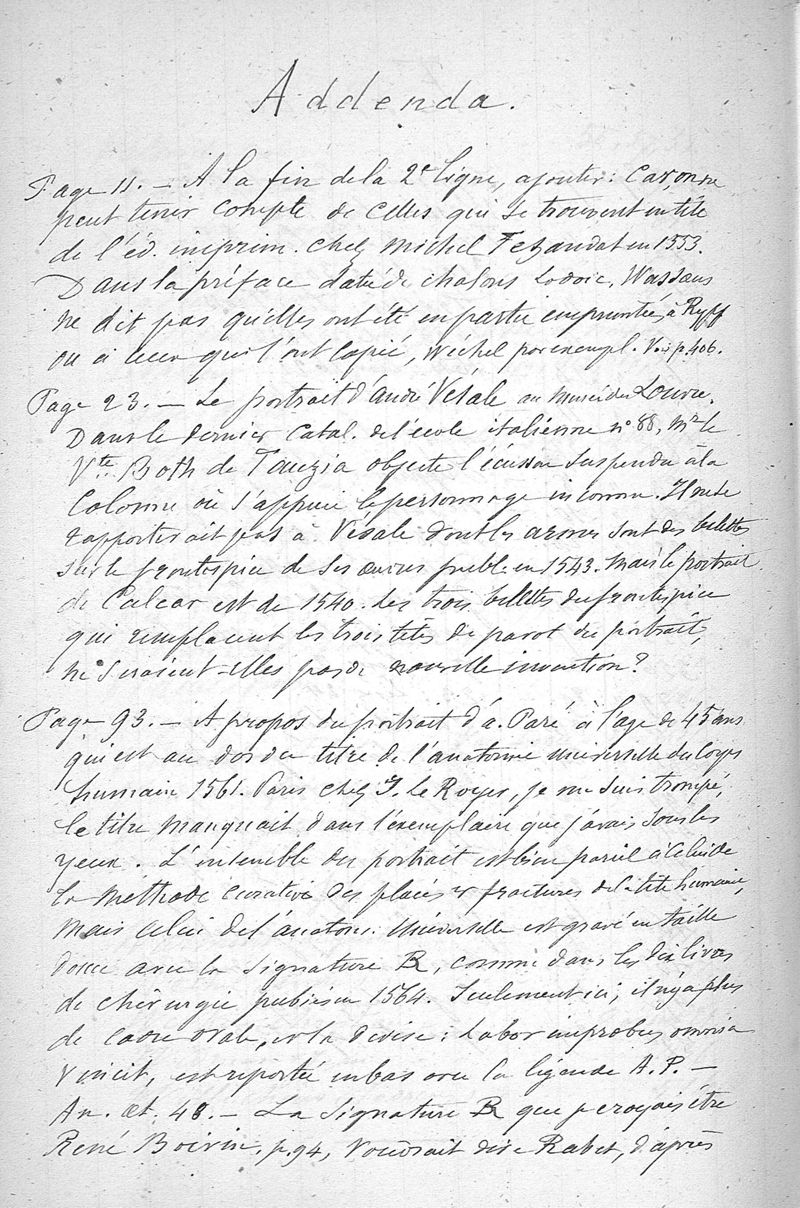 Addenda.
Page 11. – A la fin de la 2e ligne, ajouter : Car, on ne
peut tenir compte de celles qui se trouvent en tête
de l'éd. imprim. chez Michel Fezandat en 1553.
Dans la préface datée de Chalons Lodoic. Wassaus
ne dit pas qu'elles ont été en partie empruntées à Ryff
ou à ceux qui l'ont copié, Wéchel par exempl. Voir p. 406.
Page 23. – Le portrait d'André Vésale au Musée du Louvre.
Dans le dernier Catal. de l'école italienne n° 88, Mr le
Vte Both de Tauzia objecte l'écusson suspendu à la
Colonne où s'appuie le personnage inconnu. Il ne se
rapporterait pas à Vésale dont les armes sont des belettes
sur le frontispice de ses œuvres publ. en 1543. Mais le portrait
de Calcar est de 1540. Les trois belettes du frontispice
qui remplacent les trois têtes de pavot du portrait,
ne seraient-elles pas de nouvelle invention ?
Page 93. – A propos du portrait d'A. Paré à l'âge de 45 ans
qui est au dos du titre de l'anatomie universelle du corps
humain 1561. Paris chez J. Le Royer, je me suis trompé,
le titre manquait dans l'exemplaire que j'avais sous les
yeux. L'ensemble du portrait est bien pareil à celui de
la Méthode curative des playes et fractures de la tête humaine,
Mais celui de l'anatom. Universelle est gravé en taille
douce avec la signature R, comme dans les dix livres
de chirurgie publiés en 1564. Seulement ici, il n'y a plus
de cadre ovale, et la devise : Labor improbus omnia
Vincit, est reportée en bas avec la légende A. P. –
An. æt. 48. – La signature R que je croyais être
René Boivin, p. 94, voudrait dire Rabet, d'après